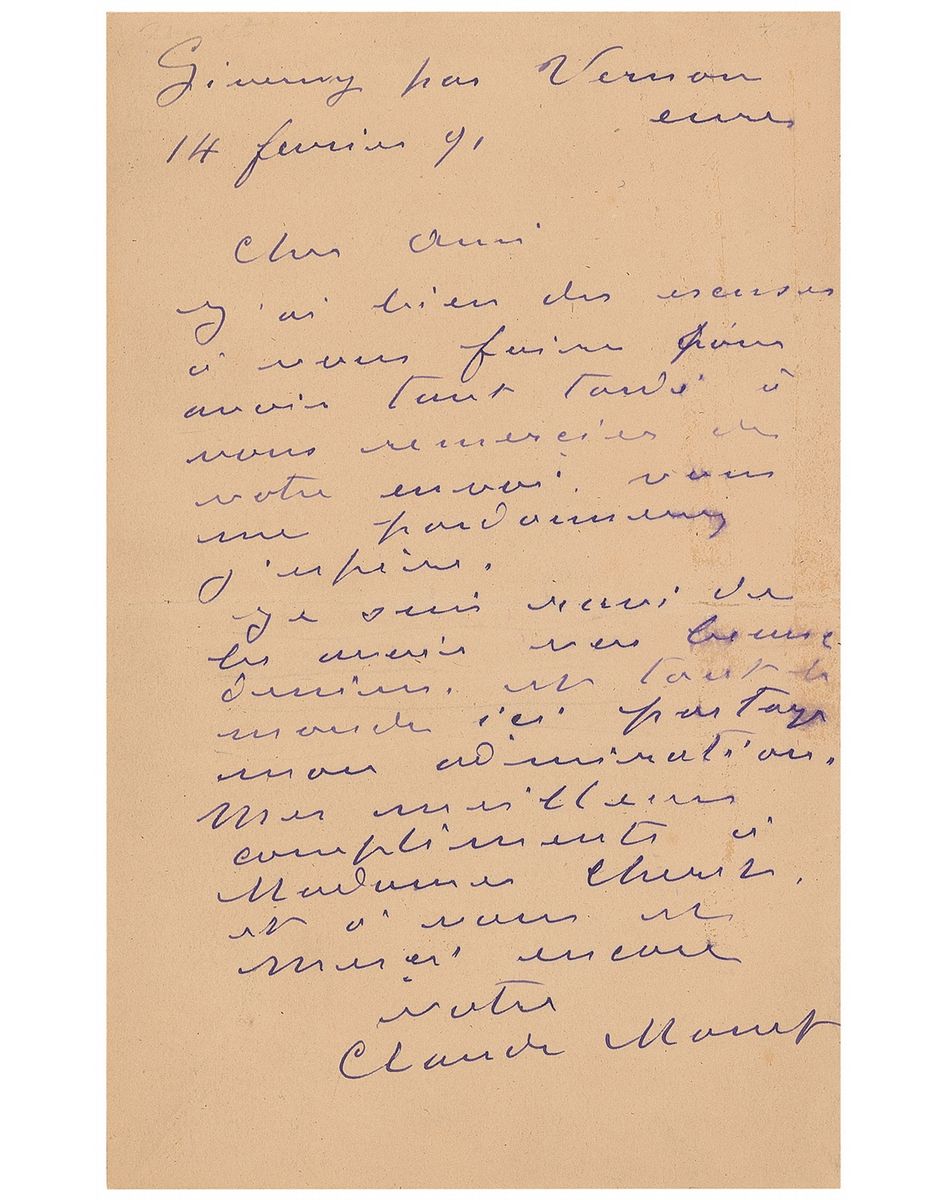 Giverny par Vernon
eure
14 fevrier 91
Cher ami
J'ai bien des excuses
à vous faire pour
avoir tant tardé à
vous remercier de
votre envoi. vous
me pardonnerez
j'espère.
Je suis ravi de
les avoir vos
et tout le
monde ici partage
mon admiration.
Mes meilleurs
compliments à
Madame Cheret,
et à vous et
Merci encore
votre
Claude Monet